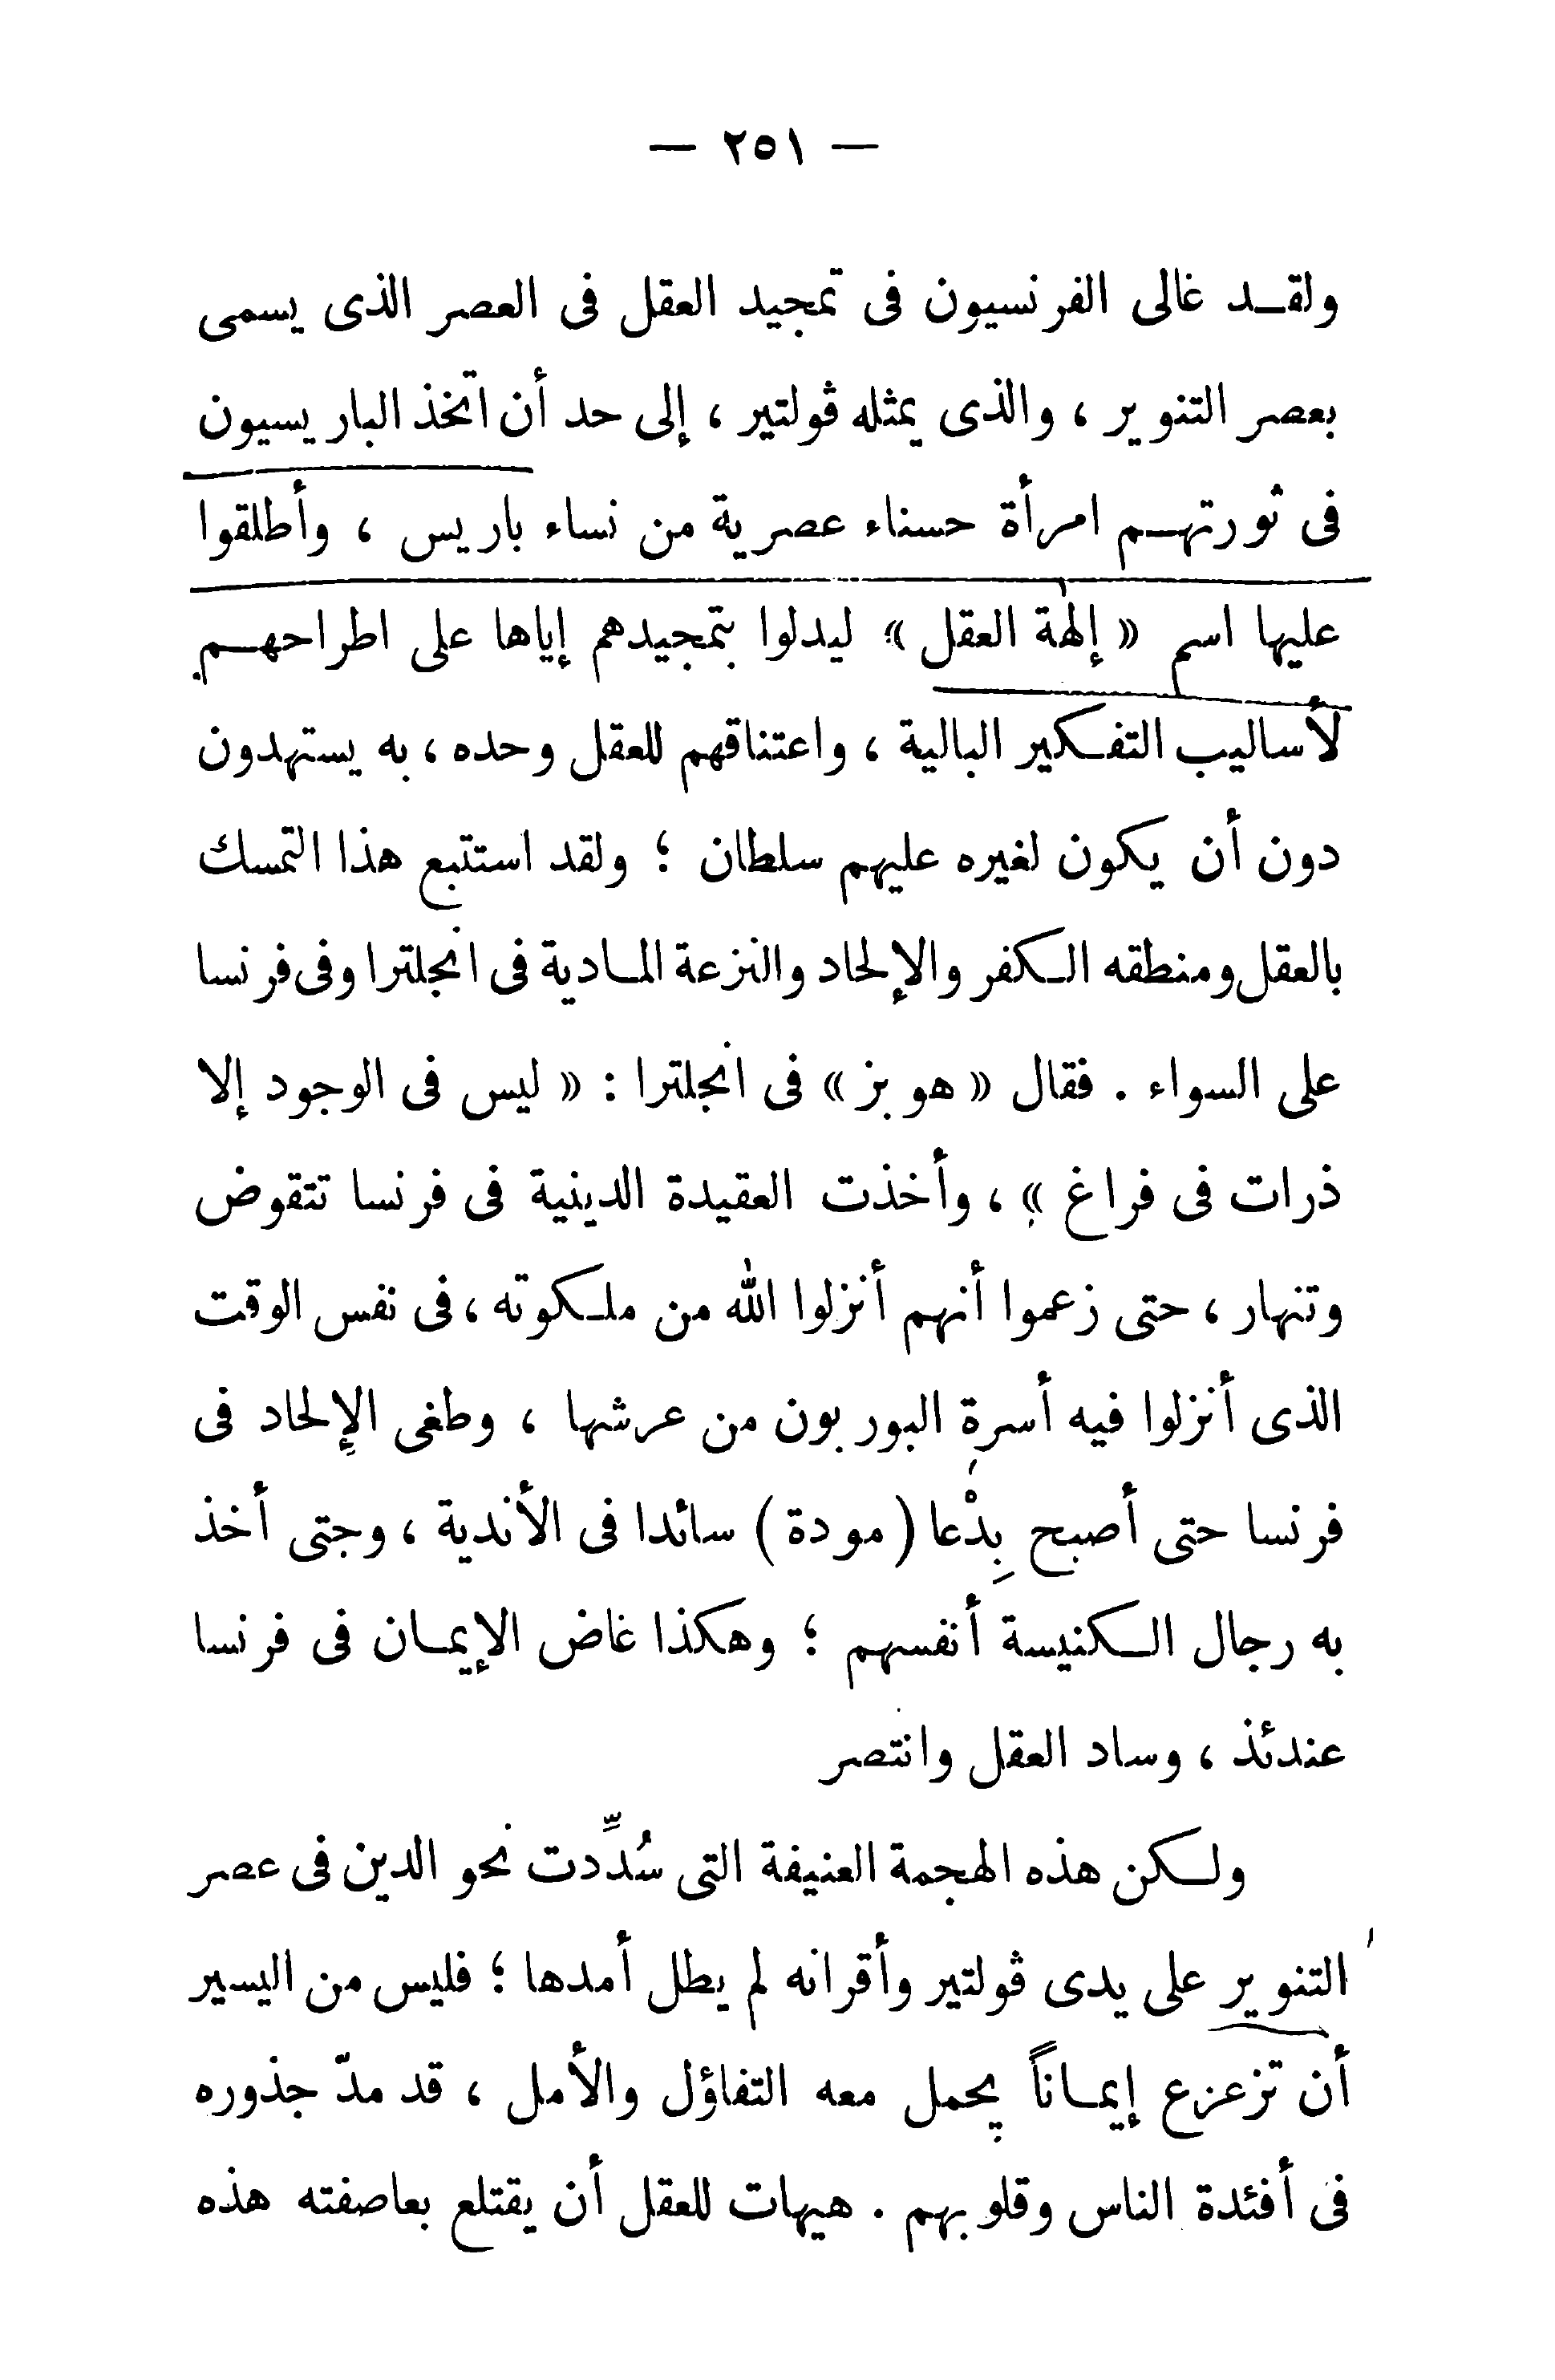 — ٢٥١ —
ولقـد غالى الفرنسيون فى تمجيد العقل فى العصر الذى يسمى
بعصر التنوير ، والذى يمثله ڤولتير ، إلى حد أن اتخذ الباريسيون
فى ثورتهـم امرأة حسناء عصرية من نساء باريس ، وأطلقوا
عليها اسم « إلهة العقل » ليدلوا بتمجيدهم إياها على اطراحهـم
لأساليب التفـكير البالية ، واعتناقهم للعقل وحده ، به يستهدون
دون أن يكون لغيره عليهم سلطان ؛ ولقد استتبع هذا التمسك
بالعقل ومنطقه الـكفر والإلحاد والنزعة المـادية فى انجلترا وفى فرنسا
على السواء . فقال « هوبز » فى انجلترا : « ليس فى الوجود إلا
ذرات فى فراغ » ، وأخذت العقيدة الدينية فى فرنسا تتقوض
وتنهار ، حتى زعموا أنهم أنزلوا الله من ملـكوته ، فى نفس الوقت
الذى أنزلوا فيه أسرة البوربون من عرشها ، وطغى الإلحاد فى
فرنسا حتى أصبح بِدْعا ( مودة ) سائدا فى الأندية ، وحتى أخذ
به رجال الـكنيسة أنفسهم ؛ وهكذا غاض الإيمـان فى فرنسا
عندئذ ، وساد العقل وانتصر
ولـكن هذه الهجمة العنيفة التى سُدِّدت نحو الدين فى عصر
التنوير على يدى ڤولتير وأقرانه لم يطل أمدها ؛ فليس من اليسير
أن تزعزع إيمـاناً يحمل معه التفاؤل والأمل ، قد مدّ جذوره
فى أفئدة الناس وقلوبهم . هيهات للعقل أن يقتلع بعاصفته هذه